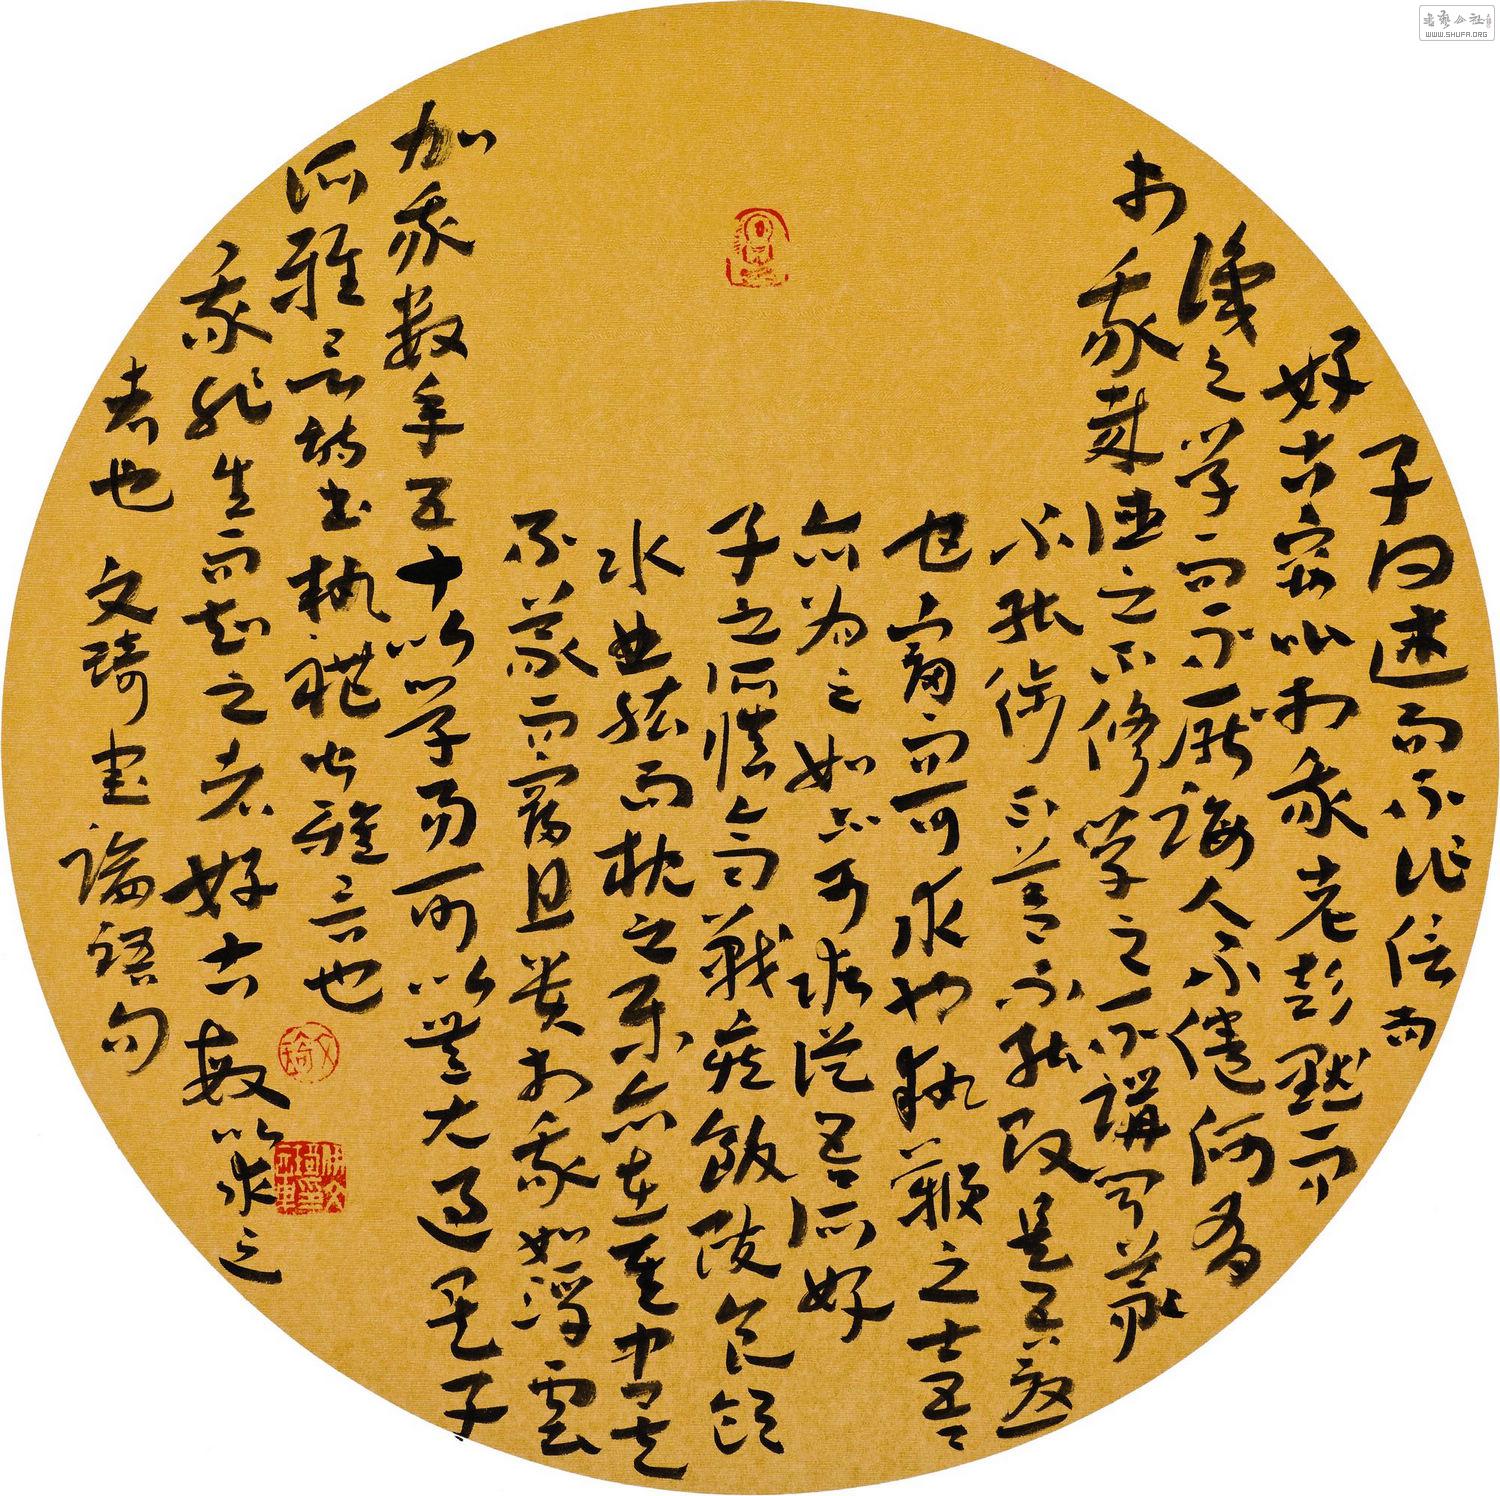 子曰述而不作信而
好古窃比于我老彭默而
识之学而不厌诲人不倦何有
于我哉德之不修学之不講闻义
不能徙不善不能改是吾憂
也富而可求也執鞭之士吾
亦为之如不可求從吾所好
子之所慎齊戰疾飯疏食饮
水曲肱而枕之乐亦在其中矣
不义而富且贵于我如浮雲
加我数年五十以学易可以無大过矣子
所雅言詩书執礼皆雅言也
我非生而知之者好古敏以求之
者也 文琦書論語句
文琦
書藝公社
WWW.SHUFA.ORG